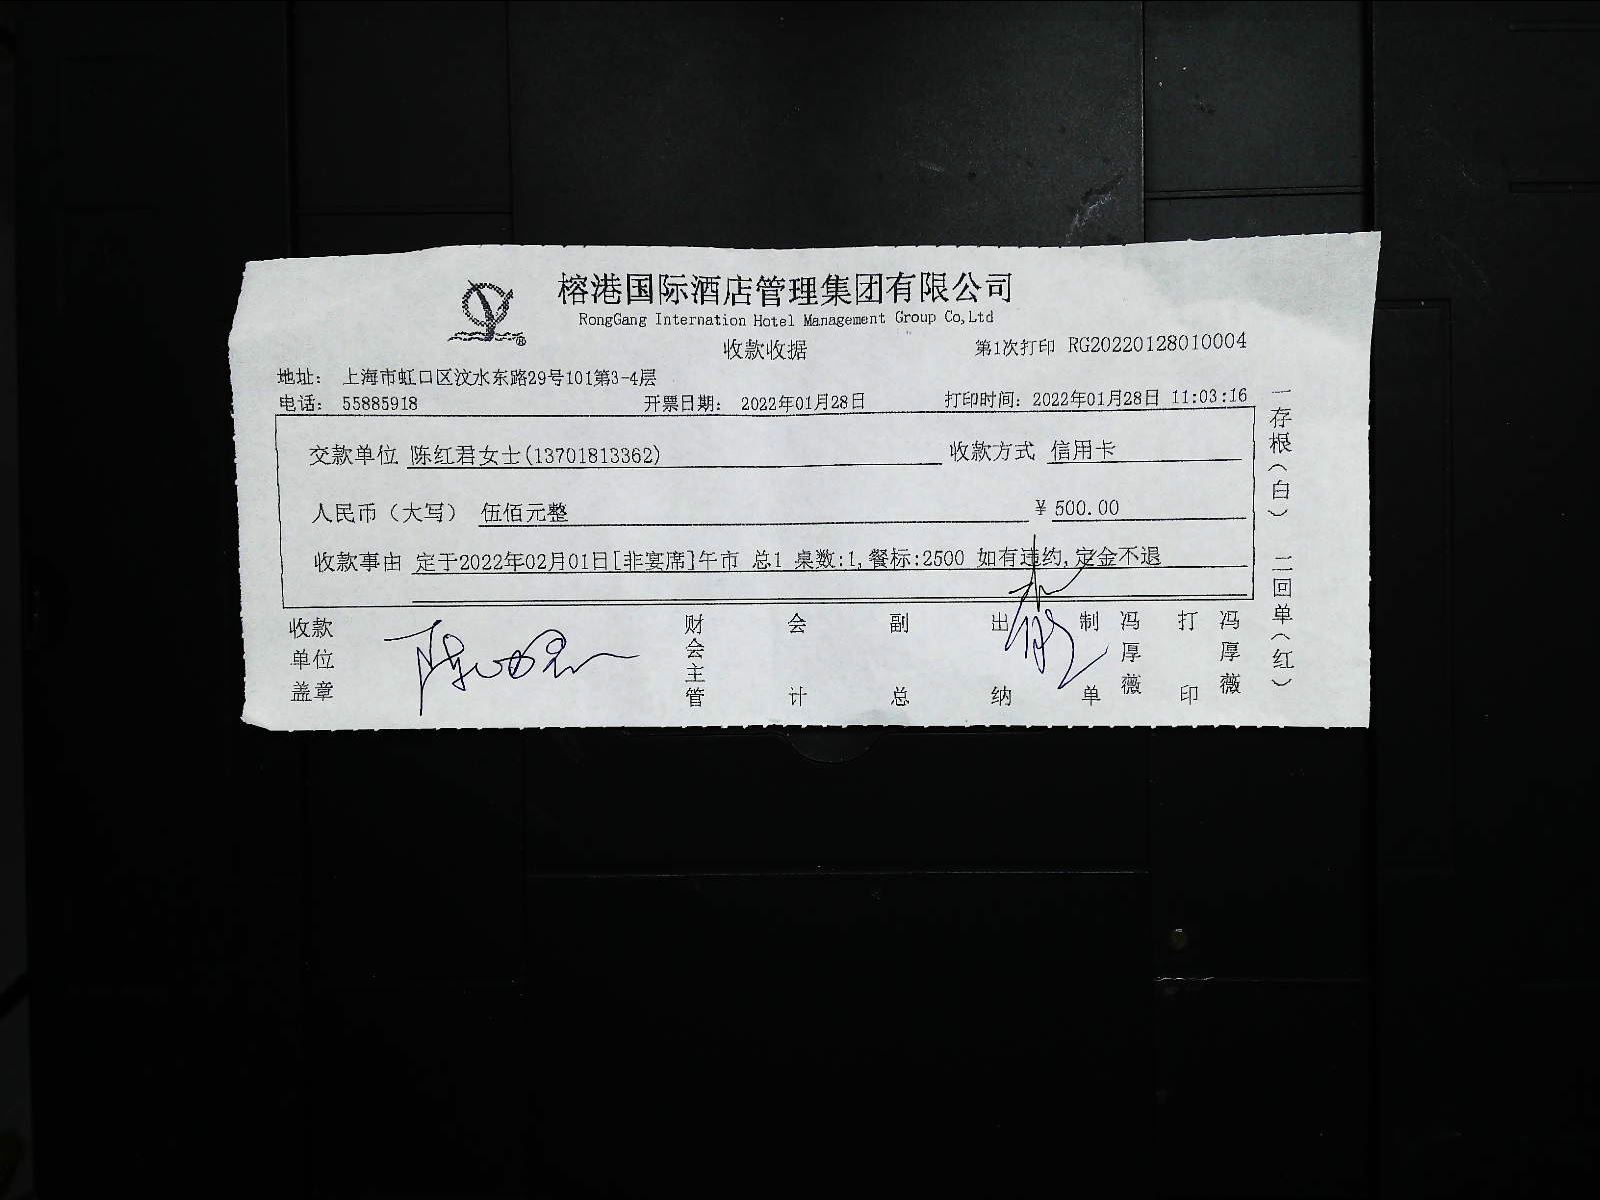 榕港国际酒店管理集团有限公司
RongGang Internation Hotel Management Group Co,Ltd
收款收据
第1次打印 RG20220128010004
地址： 上海市虹口区汶水东路29号101第3-4层
电话： 55885918 开票日期： 2022年01月28日 打印时间：2022年01月28日 11:03:16
交款单位 陈红君女士(13701813362) 收款方式 信用卡
人民币（大写） 伍佰元整 ￥500.00
收款事由 定于2022年02月01日[非宴席]午市 总1 桌数:1,餐标:2500 如有违约,定金不退
收款单位盖章
财会主管
会计
副总
出纳
制单 冯厚薇
打印 冯厚薇
一存根（白） 二回单（红）